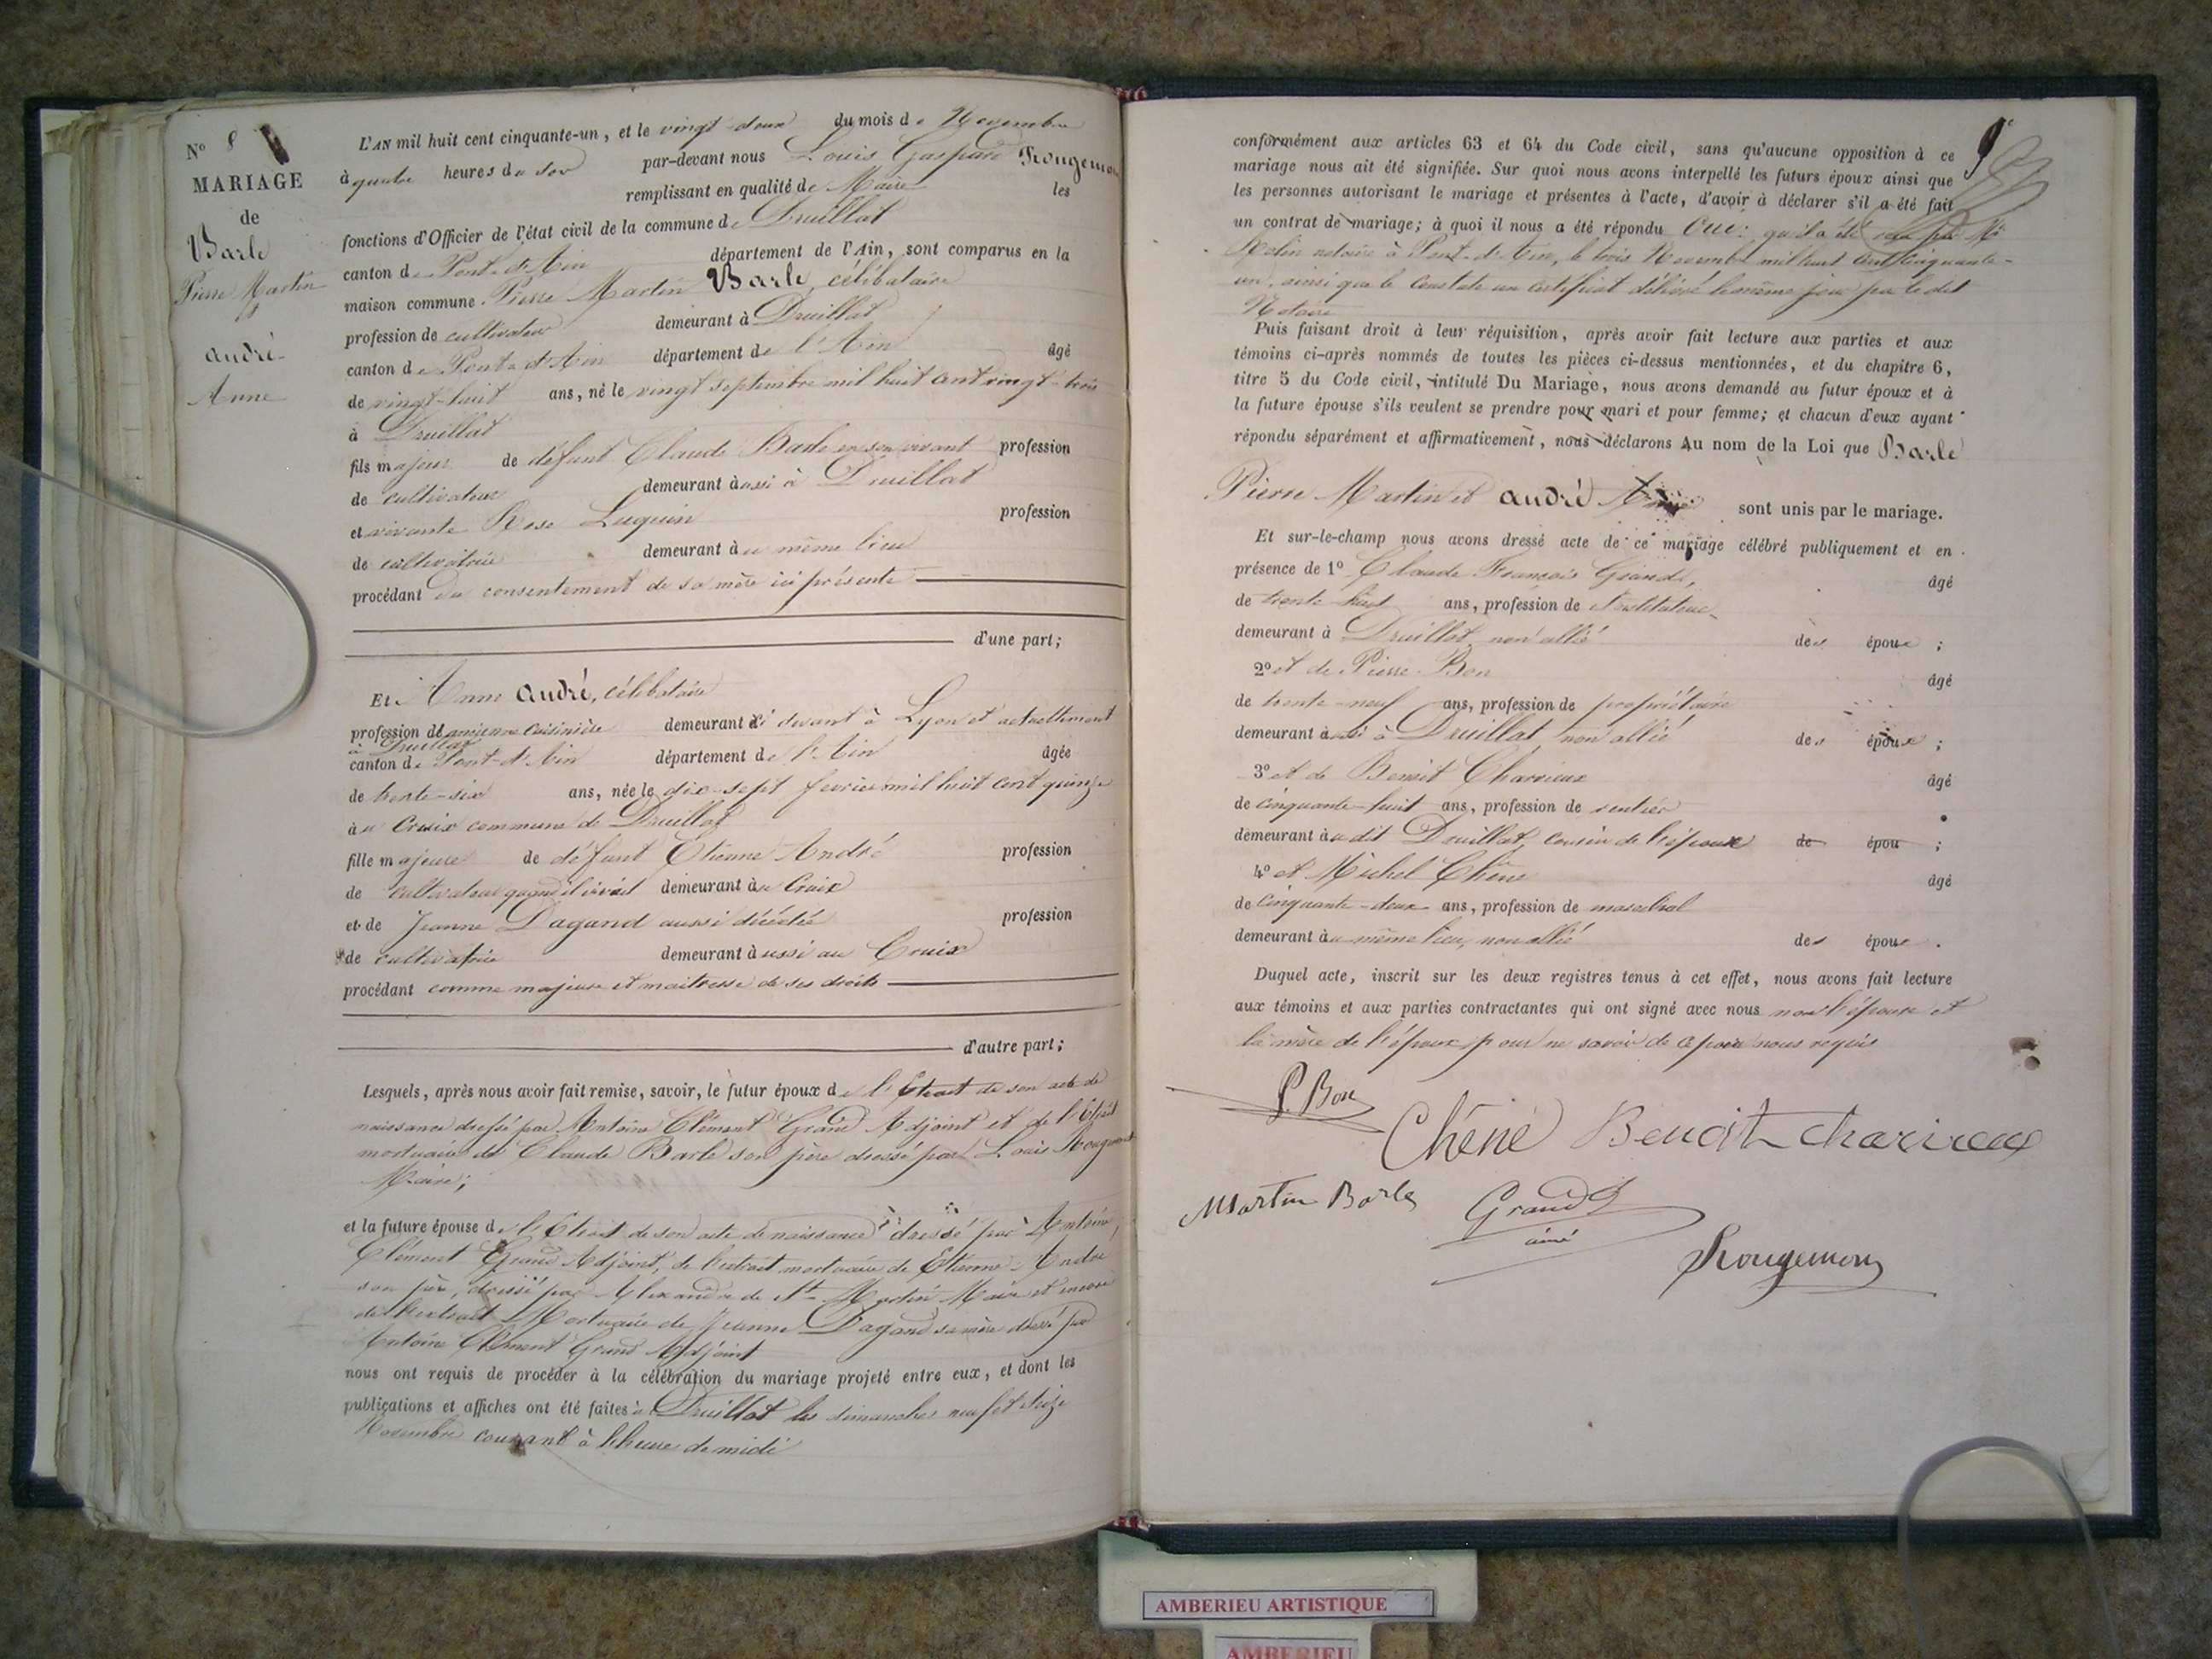 N° 8
MARIAGE
de
Barle
Pierre Martin
André
Anne
L'AN mil huit cent cinquante-un, et le vingt-deux du mois de Novembre
à quatre heures du soir par-devant nous Louis Gaspard Rougemont
remplissant en qualité de Maire les
fonctions d'Officier de l'état civil de la commune de Druillat
canton de Pont-d'Ain département de l'Ain, sont comparus en la
maison commune Pierre Martin Barle, célibataire
profession de cultivateur demeurant à Druillat
canton de Pont-d'Ain département de l'Ain âgé
de vingt-huit ans, né le vingt septembre mil huit cent vingt-trois
à Druillat
fils majeur de défunt Claude Barle en son vivant profession
de cultivateur demeurant aussi à Druillat
et vivante Rose Luquin profession
de cultivatrice demeurant au même lieu
procédant du consentement de sa mère ici présente
d'une part;
Et Anne André, célibataire
profession d'ancienne cuisinière demeurant ci devant à Lyon et actuellement
à Druillat
canton de Pont-d'Ain département de l'Ain âgée
de trente-six ans, née le dix-sept fevrier mil huit cent quinze
au Cruix commune de Druillat
fille majeure de défunt Etienne André profession
de cultivateur quand il vivait demeurant au Cruix
et de Jeanne Dagand aussi décédée profession
de cultivatrice demeurant aussi au Cruix
procédant comme majeure et maitresse de ses droits
d'autre part;
Lesquels, après nous avoir fait remise, savoir, le futur époux de l'Extrait de son acte de
naissance dressé par Antoine Clément Grand Adjoint et de l'Extrait
mortuaire de Claude Barle son père dressé par Louis Rougemont
Maire;
et la future épouse de l'Extrait de son acte de naissance dressé par Antoine
Clément Grand Adjoint, de l'extrait mortuaire de Etienne André
son père, dressé par Alexandre de St Martin Maire et encore
de l'extrait Mortuaire de Jeanne Dagand sa mère dressé par
Antoine Clément Grand Adjoint
nous ont requis de procéder à la célébration du mariage projeté entre eux, et dont les
publications et affiches ont été faites à Druillat les dimanches neuf et seize
Novembre courant à l'heure de midi
conformément aux articles 63 et 64 du Code civil, sans qu'aucune opposition à ce
mariage nous ait été signifiée. Sur quoi nous avons interpellé les futurs époux ainsi que
les personnes autorisant le mariage et présentes à l'acte, d'avoir à déclarer s'il a été fait
un contrat de mariage; à quoi il nous a été répondu Oui: qu'il a été par Me
notaire à Pont-d'Ain, le trois Novembre mil huit cent cinquante-
un, ainsi que le constate un certificat délivré le même jour par le dit
Notaire
Puis faisant droit à leur réquisition, après avoir fait lecture aux parties et aux
témoins ci-après nommés de toutes les pièces ci-dessus mentionnées, et du chapitre 6,
titre 5 du Code civil, intitulé Du Mariage, nous avons demandé au futur époux et à
la future épouse s'ils veulent se prendre pour mari et pour femme; et chacun d'eux ayant
répondu séparément et affirmativement, nous déclarons Au nom de la Loi que Barle
Pierre Martin et André Anne sont unis par le mariage.
Et sur-le-champ nous avons dressé acte de ce mariage célébré publiquement et en
présence de 1° Claude François Grand, âgé
de trente huit ans, profession de instituteur
demeurant à Druillat non allié des époux ;
2° et de Pierre Bon âgé
de trente-neuf ans, profession de propriétaire
demeurant aussi à Druillat non allié des époux ;
3° et de Benoit Charvieux âgé
de cinquante-huit ans, profession de rentier
demeurant au dit Druillat, cousin de l'épouse de épou ;
4° et Michel Chêne âgé
de cinquante-deux ans, profession de marechal
demeurant au même lieu, non allié des époux .
Duquel acte, inscrit sur les deux registres tenus à cet effet, nous avons fait lecture
aux témoins et aux parties contractantes qui ont signé avec nous non l'épouse et
la mère de l'époux pour ne savoir de ce faire nous requis
P. Bon
Chêne Benoit charvieux
Martin Barle Grand
ainé
Rougemont
AMBERIEU ARTISTIQUE
AMBERIEU